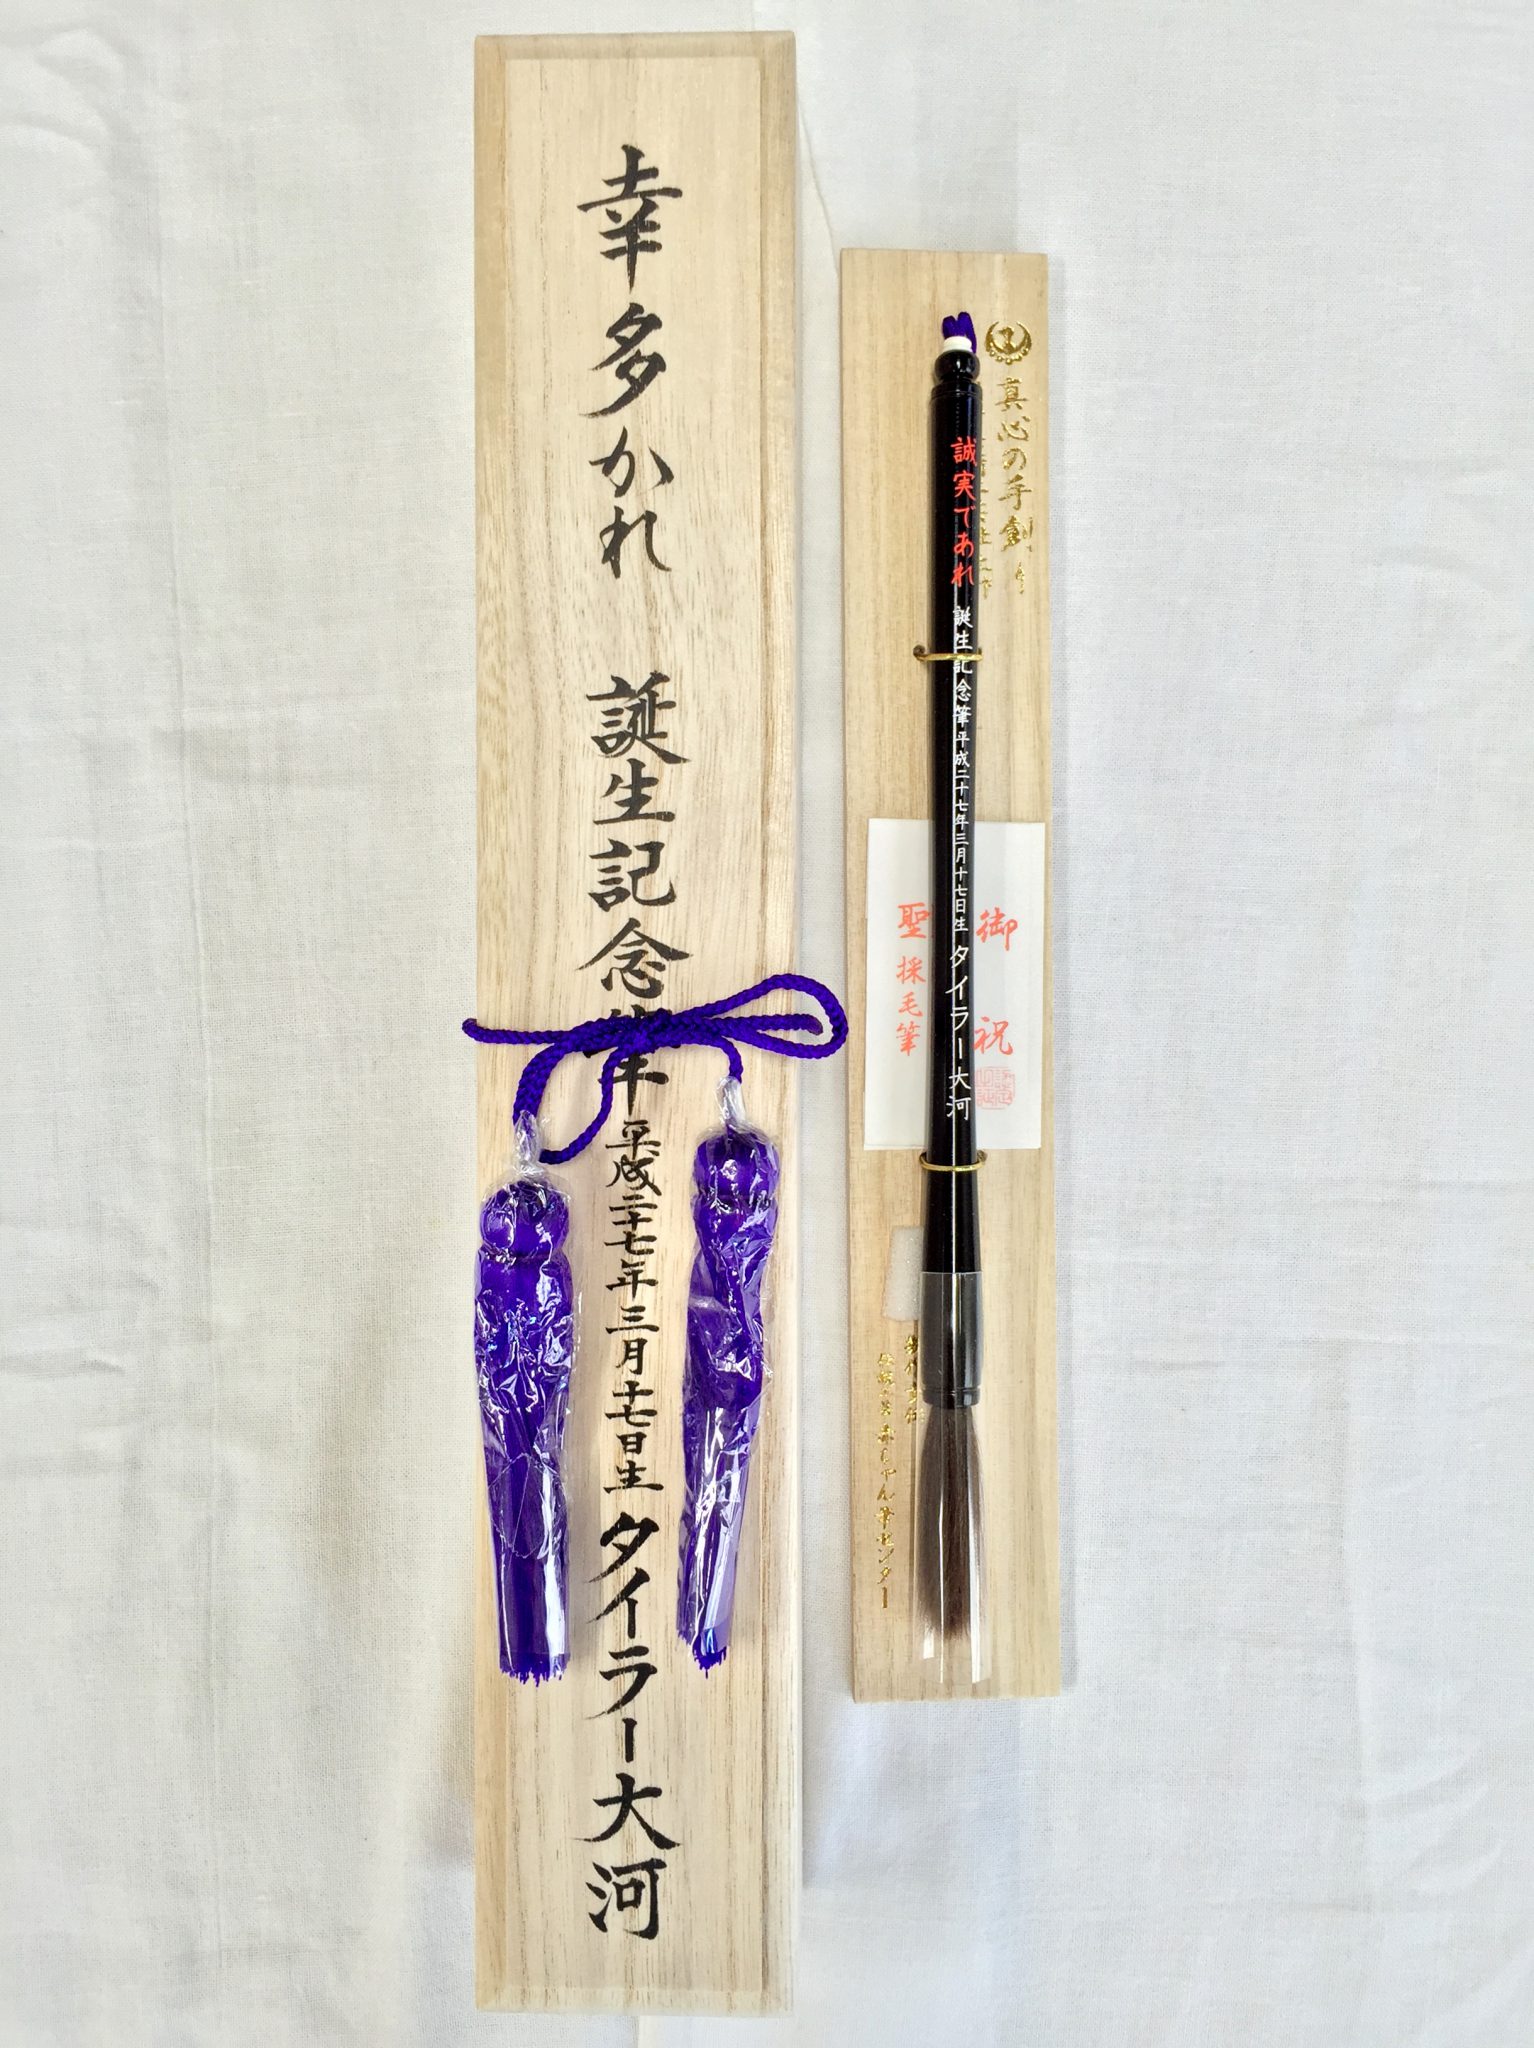 幸多かれ 誕生記念筆 平成二十七年三月十七日生 タイラー大河
真心の手創り
誠実であれ 誕生記念筆 平成二十七年三月十七日生 タイラー大河
御祝
採毛筆
赤しゃん筆センター